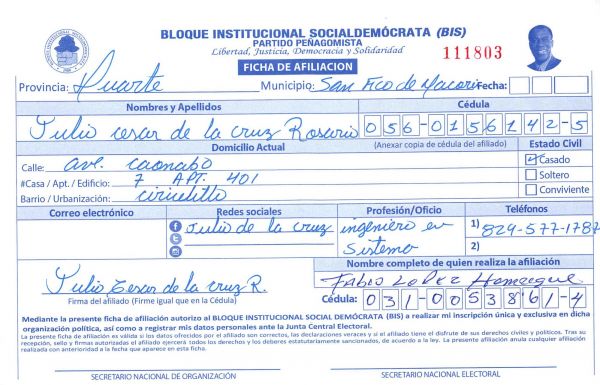 BLOQUE INSTITUCIONAL SOCIALDEMÓCRATA (BIS)
PARTIDO PEÑAGOMISTA
Libertad, Justicia, Democracia y Solidaridad
111803
FICHA DE AFILIACION
Provincia: Duarte Municipio: San Fco de Macoris Fecha:
Nombres y Apellidos Cédula
Julio cesar de la cruz Rosario 056-0156142-5
Domicilio Actual (Anexar copia de cédula del afiliado) Estado Civil
Calle: ave. caonabo Casado
#Casa / Apt. / Edificio: 7 APT. 401 Soltero
Barrio / Urbanización: Conviviente
Correo electrónico Redes sociales Profesión/Oficio Teléfonos
Julio de la cruz ingeniero en 1) 829-577-1787
Sistema 2)
Nombre completo de quien realiza la afiliación
Julio Cesar de la cruz R. Fabio Lopez
Firma del afiliado (Firme igual que en la Cédula) Cédula: 031-0053861-4
Mediante la presente ficha de afiliación autorizo al BLOQUE INSTITUCIONAL SOCIAL DEMÓCRATA (BIS) a realizar mi inscripción única y exclusiva en dicha
organización política, así como a registrar mis datos personales ante la Junta Central Electoral.
La presente ficha de afiliación es válida si los datos ofrecidos por el afiliado son correctos, las declaraciones veraces y si el afiliado tiene el disfrute de sus derechos civiles y políticos. Tras su
recepción, sello y firmas autorizadas el afiliado ejercerá todos los derechos y los deberes estatutariamente sancionados, de acuerdo a la ley. La presente afiliación anula cualquier afiliación
realizada con anterioridad a la fecha que aparece en esta ficha.
SECRETARIO NACIONAL DE ORGANIZACIÓN SECRETARIO NACIONAL ELECTORAL